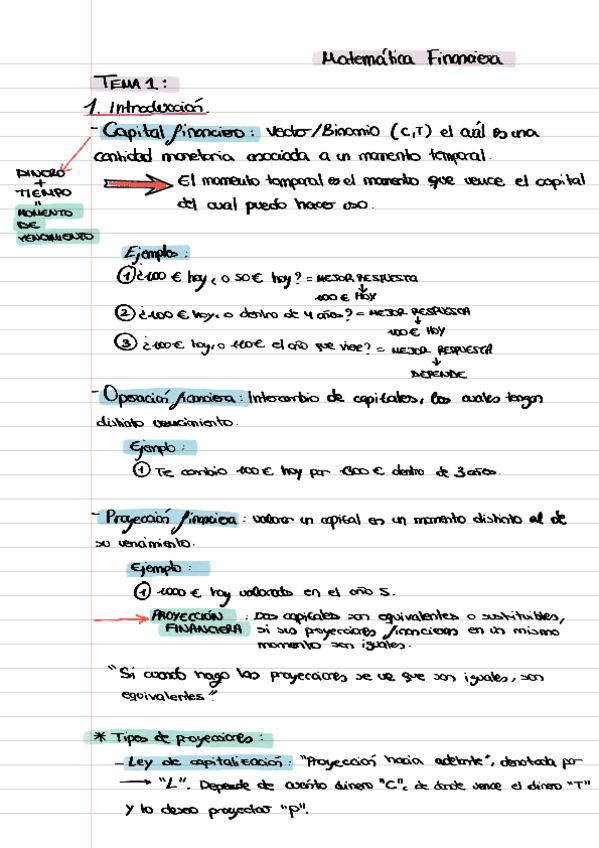 Matemática Financiera
TEMA 1:
1. Introducción.
- Capital financiero: Vector/Binomio (C,T) el cuál es una
cantidad monetaria asociada a un momento temporal.
DINERO
+
TIEMPO
"
MOMENTO
DE
VENCIMIENTO
El momento temporal es el momento que vence el capital
del cual puedo hacer uso.
Ejemplos:
1 ¿100 € hoy, o 50€ hoy? = MEJOR RESPUESTA
100 € HOY
2 ¿100 € hoy, o dentro de 4 años? = MEJOR RESPUESTA
100 € HOY
3 ¿100€ hoy, o 110€ el año que viene? = MEJOR RESPUESTA
DEPENDE
- Operación financiera: Intercambio de capitales, los cuales tengan
distinto vencimiento.
Ejemplo:
1 Te cambio 100 € hoy por 1300 € dentro de 3 años.
- Proyección financiera: valorar un capital en un momento distinto al de
su vencimiento.
Ejemplo:
1 1000 € hoy valorados en el año 5.
PROYECCIÓN FINANCIERA: Dos capitales son equivalentes o sustituibles,
si sus proyecciones financieras en un mismo
momento son iguales.
"Si cuando hago las proyecciones se ve que son iguales, son
equivalentes"
* Tipos de proyecciones:
- Ley de capitalización: "Proyección hacia adelante", denotada por
→ "L". Depende de cuánto dinero "C", de donde vence el dinero "T"
y lo deseo proyectar "p".